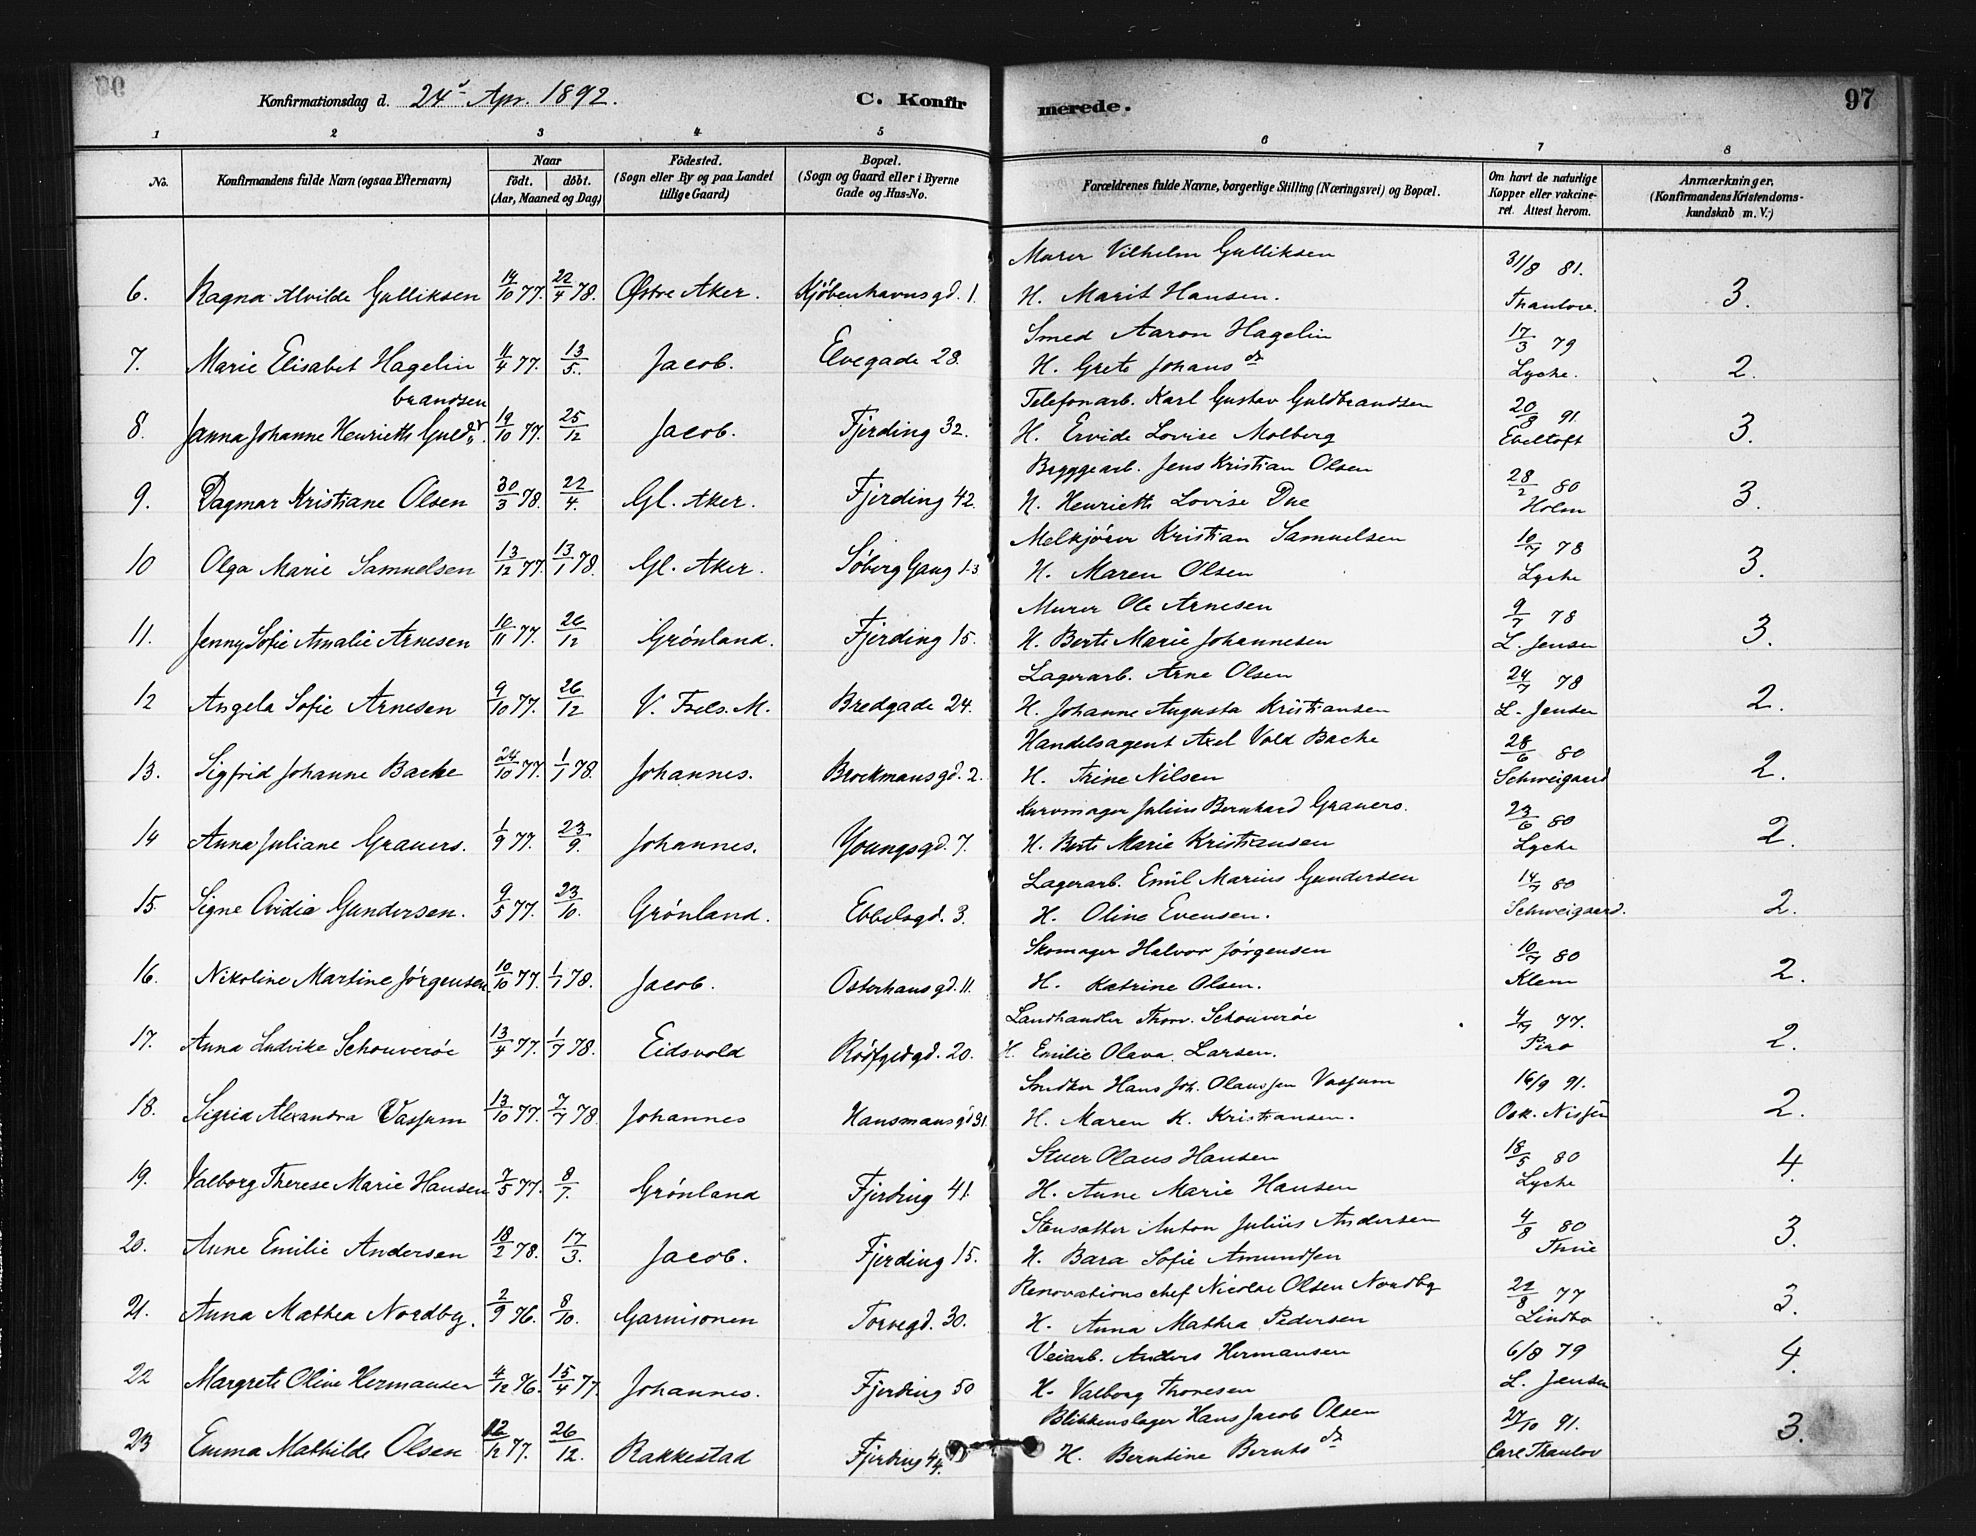 Konfirmationsdag d. 24d Apr. 1892. C. Konfirmerede. 97
1 2 3 4 5 6 7 8
No. Konfirmandens fulde Navn (ogsaa Efternavn) Naar født. døbt. (Aar, Maaned og Dag) Fødested. (Sogn eller By og paa Landet tillige Gaard) Bopæl. (Sogn og Gaard eller i Byerne Gade og Hus-No. Forældrenes fulde Navne, borgerlige Stilling (Næringsvei) og Bopæl. Om havt de naturlige Kopper eller vakcineret. Attest herom. Anmærkninger. (Konfirmandens Kristendomskundskab m. V.)
Murer Vilhelm Gulliksen 31/8 81.
6. Ragna Alvilde Gulliksen 14/10 77. 22/4 78. Østre Aker. Kjøbenhavnsgd. 1. H. Marit Hansen. Thaulow. 3.
Smed Aaron Hagelin 17/3 79
7. Marie Elisabet Hagelin 11/4 77. 13/5. Jacob. Elvegade 28. H. Grete Johansdr Lyche. 2.
brandsen Telefonarb. Karl Gustav Guldbrandsen 20/3 91.
8. Janna Johanne Henriette Guld 19/10 77. 25/12 Jacob. Fjerding 32. H. Ervide Lovise Molberg Ebeltoft 3.
Byggearb. Jens Kristian Olsen 28/2 80
9. Dagmar Kristiane Olsen 30/3 78. 22/4. Gl. Aker. Fjerding 42. H. Henriette Lovise Due Holm 3.
Melkjører Kristian Samuelsen 10/7 78
10 Olga Marie Samuelsen 13/12 77. 13/1 78. Gl. Aker. Søberg Gang 13 H. Maren Olsen Lyche 3.
Murer Ole Arnesen 9/7 78
11. Jenny Sofie Amalie Arnesen 16/11 77. 26/12 Grønland. Fjerding 15. H. Berte Marie Johannesen L. Jensen 3.
Lagerarb. Arne Olsen 24/7 78
12 Angela Sofie Arnesen 9/10 77. 26/12 V. Frels. M. Bredgade 24. H. Johanne Augusta Kristiansen L. Jensen 2.
Handelsagent Axel Vold Backe 28/6 80
13. Sigfrid Johanne Backe 24/10 77. 1/1 78. Johannes. Brockmansgd. 2. H. Trine Nilsen Schweigaard 2.
Kurvmager Julius Bernhard Grauers. 23/6 80
14 Anna Juliane Grauers. 1/9 77. 23/9. Johannes. Youngsgd. 7. H. Berte Marie Kristiansen Lyche 2.
Lagerarb. Emil Marius Gundersen 14/7 80
15. Signe Ovidia Gundersen. 9/5 77. 23/10. Grønland. Ebbelsgd. 3. H. Oline Evensen. Schweigaard. 2.
Skomager Halvor Jørgensen 10/7 80
16. Nikoline Martine Jørgensen 10/10 77. 1/1 78. Jacob. Osterhausgd. 11. H. Katrine Olsen. Klem 2.
Landhandler Thorv. Schouverøe 4/9 77.
17. Anna Ludvike Schouverøe 13/4 77. 1/7 78. Eidsvold Rødfyldgd. 20. H. Emilie Olava Larsen. Piro 2.
Snedker Hans Joh. Olaussen Vassum 16/9 91.
18. Sigrid Alexandra Vassum 13/10 77. 7/7 78 Johannes Hausmansgd 31. H. Maren K. Kristiansen. Osk. Nissen 2.
Stuer Olaus Hansen 18/5 80
19. Valborg Therese Marie Hansen 7/5 77. 8/7. Grønland Fjerding 41. H. Anne Marie Hansen Lyche 4.
Stensætter Anton Julius Andersen 4/8 80
20. Anne Emilie Andersen 18/2 78. 17/3. Jacob. Fjerding 15. H. Bara Sofie Amundsen Thue 3.
Renovationschef Nicolae Olsen Nordby 22/8 77
21. Anna Mathea Nordby. 2/9 76. 8/10. Garnisonen Torvegd. 30. H. Anna Mathea Pedersen Lindbo 3.
Veiarb. Anders Hermansen 6/8 79
22 Margrete Olive Hermansen 4/12 76. 15/4 77. Johannes. Fjerding 50 H. Valborg Thoresen L. Jensen 4.
Blikkenslager Hans Jacob Olsen 27/10 91.
23 Emma Mathilde Olsen 12/12 77. 26/12. Rakkestad Fjerding 44. H. Berntine Berntsdr Carl Thaulow 3.